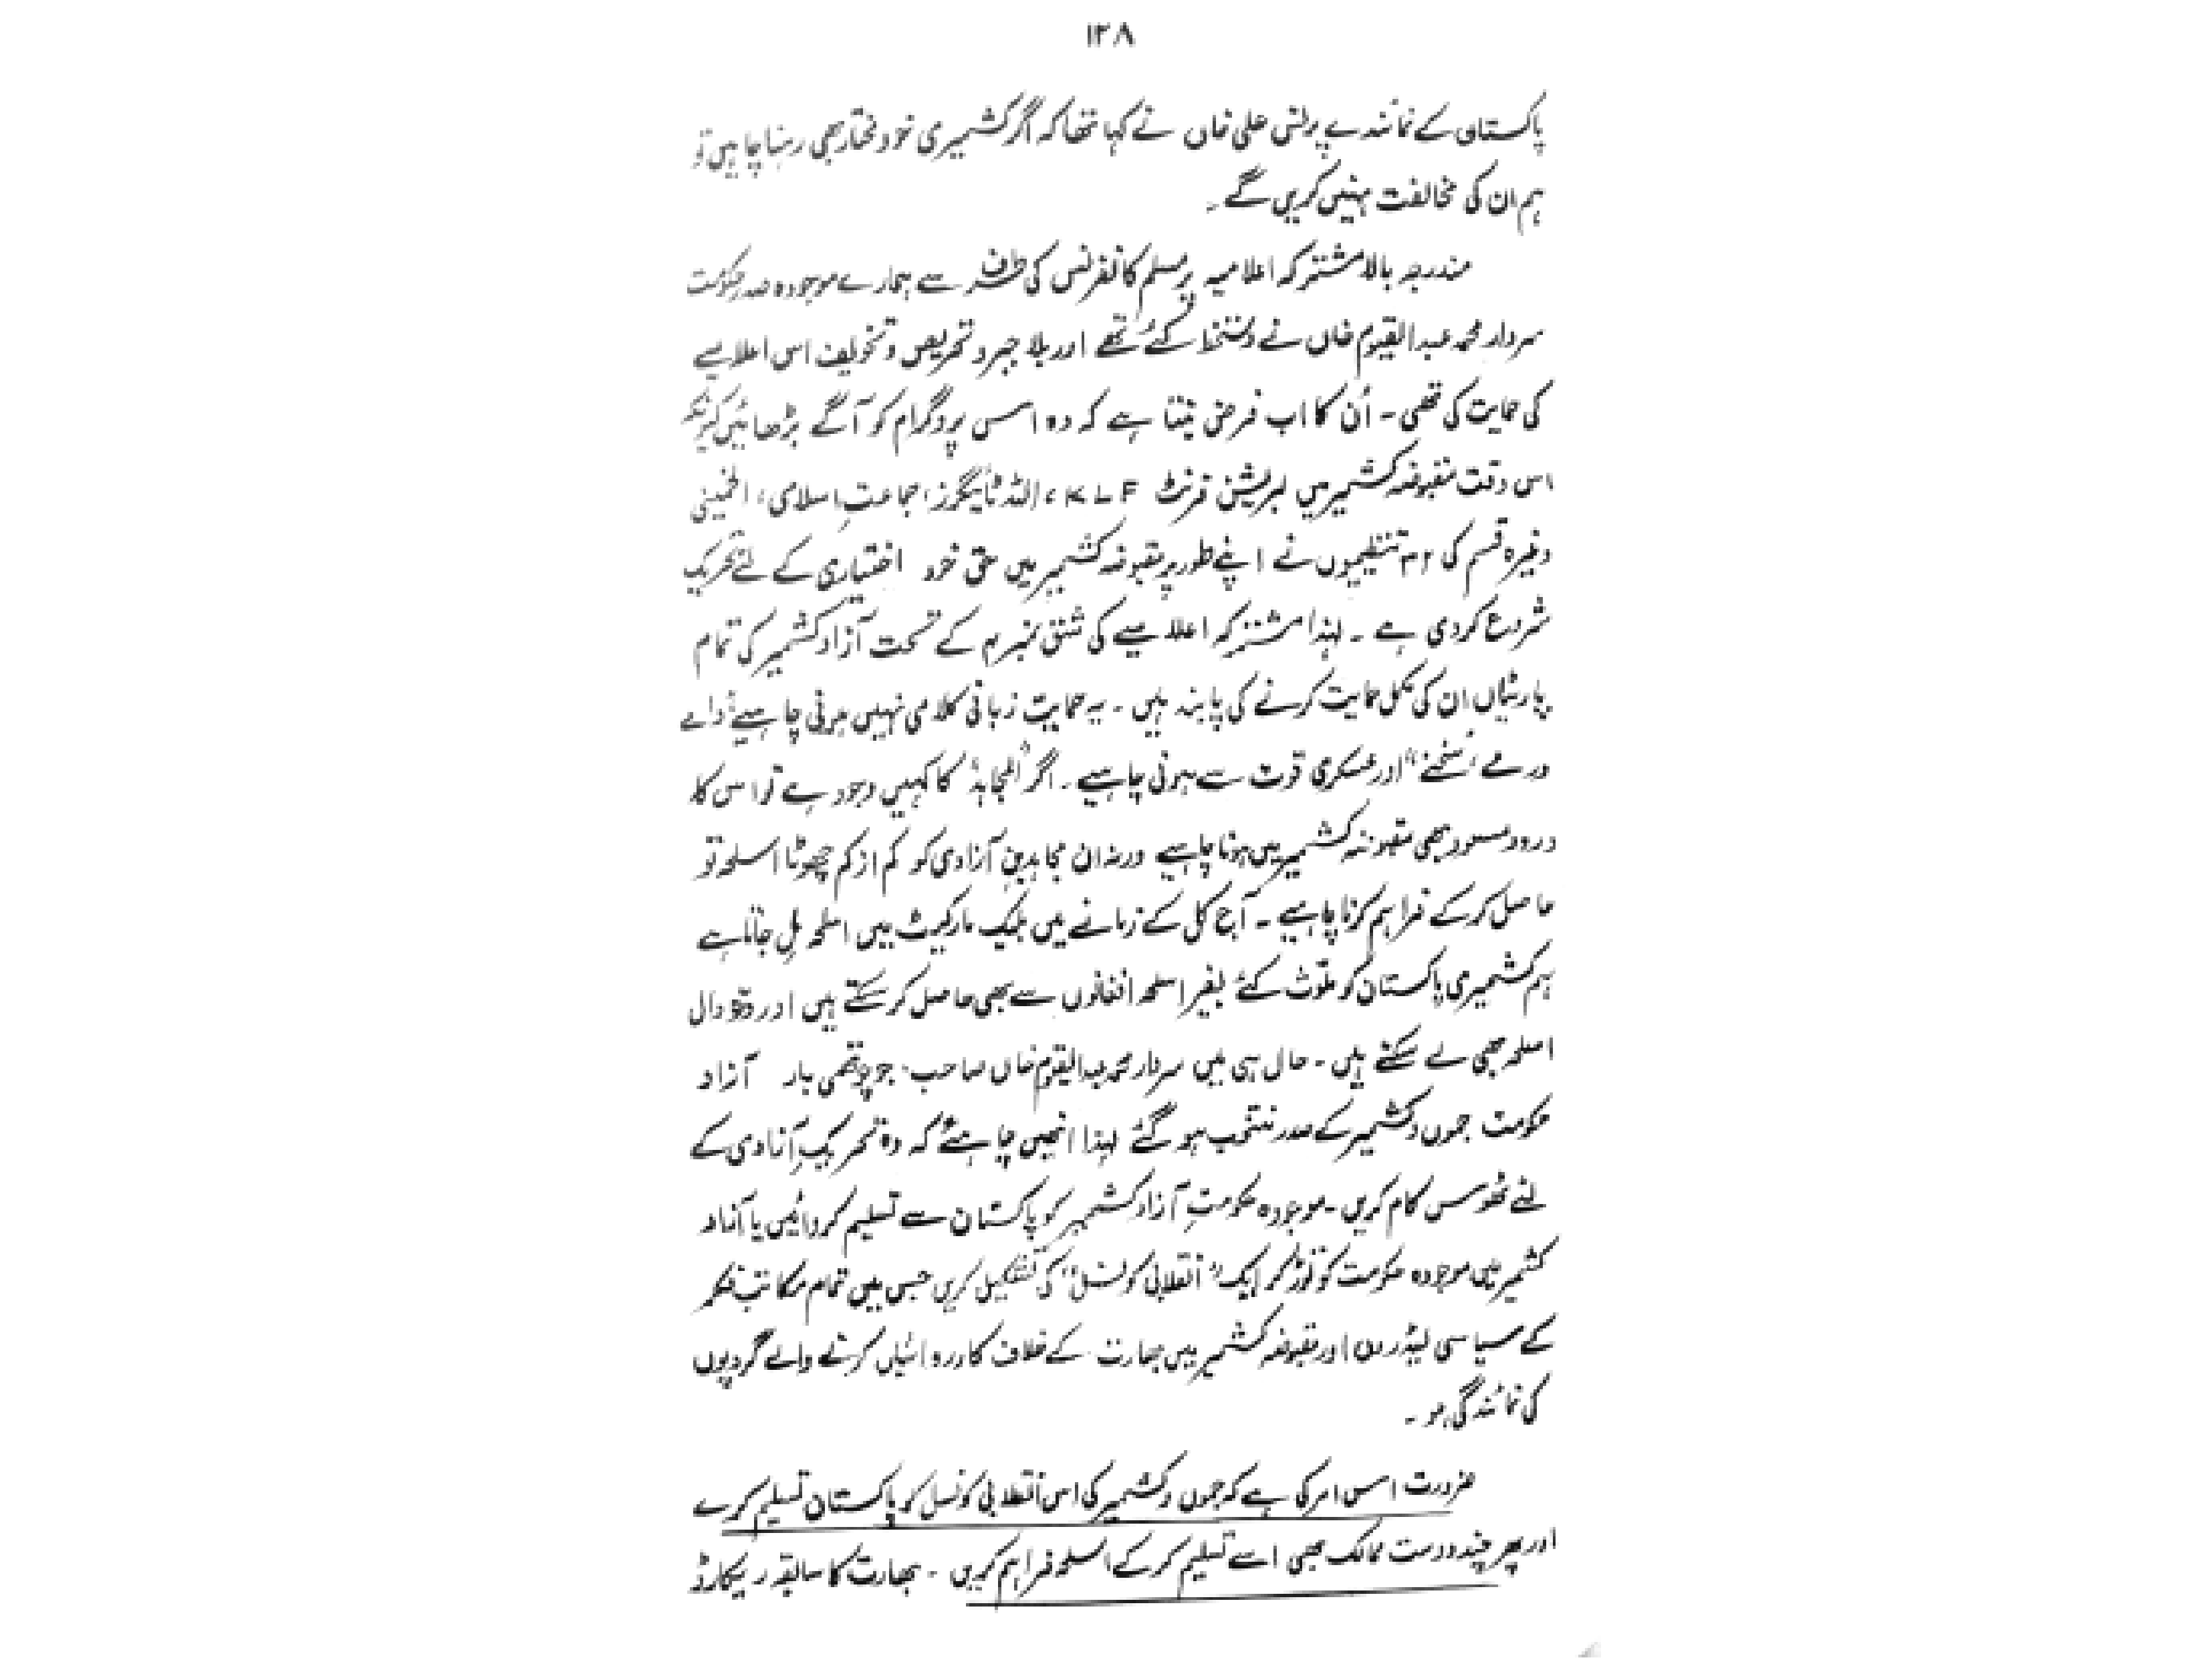 ۱۳۸
پاکستان کے نمائندے یونس علی خاں نے کہا تھا کہ اگر کشمیری خود مختار بھی رہنا چاہیں تو
ہم ان کی مخالفت نہیں کریں گے۔
مندرجہ بالا مشترکہ اعلامیہ پر مسلم کانفرنس کی طرف سے ہمارے موجودہ صدر حکومت
سردار محمد عبدالقیوم خاں نے دستخط کئے تھے اور بلا جبر و تحریص و تخویف اس اعلامیے
کی حمایت کی تھی۔ اُن کا اب فرض بنتا ہے کہ وہ اس پروگرام کو آگے بڑھائیں کیونکہ
اس وقت مقبوضہ کشمیر میں لبریشن فرنٹ KLF، اللہ ٹائیگرز، جماعتِ اسلامی، الخمینی
وغیرہ قسم کی ۳۲ تنظیموں نے اپنے طور پر مقبوضہ کشمیر میں حق خود اختیاری کے لئے تحریک
شروع کر دی ہے۔ لہذا مشترکہ اعلامیے کی شق نمبر ۴ کے تحت آزاد کشمیر کی تمام
پارٹیاں ان کی مکمل حمایت کرنے کی پابند ہیں۔ یہ حمایت زبانی کلامی نہیں ہونی چاہیے، دامے
درمے، سخنے" اور عسکری قوت سے ہونی چاہیے۔ اگر "المجاہد" کا کہیں وجود ہے تو اس کا
ورود مسعود بھی مقبوضہ کشمیر میں ہونا چاہیے ورنہ ان مجاہدینِ آزادی کو کم از کم چھوٹا اسلحہ تو
حاصل کر کے فراہم کرنا چاہیے۔ آج کل کے زمانے میں بلیک مارکیٹ میں اسلحہ مل جاتا ہے
ہم کشمیری پاکستان کو ملوّث کئے بغیر اسلحہ افغانوں سے بھی حاصل کر سکتے ہیں اور دوّ والی
اسلحہ بھی لے سکتے ہیں۔ حال ہی میں سردار محمد عبدالقیوم خاں صاحب جو چوتھی بار آزاد
حکومت جموں و کشمیر کے صدر منتخب ہو گئے لہذا انھیں چاہئے کہ وہ تحریکِ آزادی کے
لئے ٹھوس کام کریں۔ موجودہ حکومتِ آزاد کشمیر کو پاکستان سے تسلیم کروائیں یا آزاد
کشمیر میں موجودہ حکومت کو توڑ کر ایک "انقلابی کونسل" کی تشکیل کریں جس میں تمام مکاتب فکر
کے سیاسی لیڈروں اور مقبوضہ کشمیر میں بھارت کے خلاف کارروائیاں کرنے والے گروپوں
کی نمائندگی ہو۔
ضرورت اس امر کی ہے کہ جموں و کشمیر کی اس انقلابی کونسل کو پاکستان تسلیم کرے
اور پھر چند دوست ممالک بھی اسے تسلیم کر کے اسلحہ فراہم کریں۔ بھارت کا سابقہ ریکارڈ